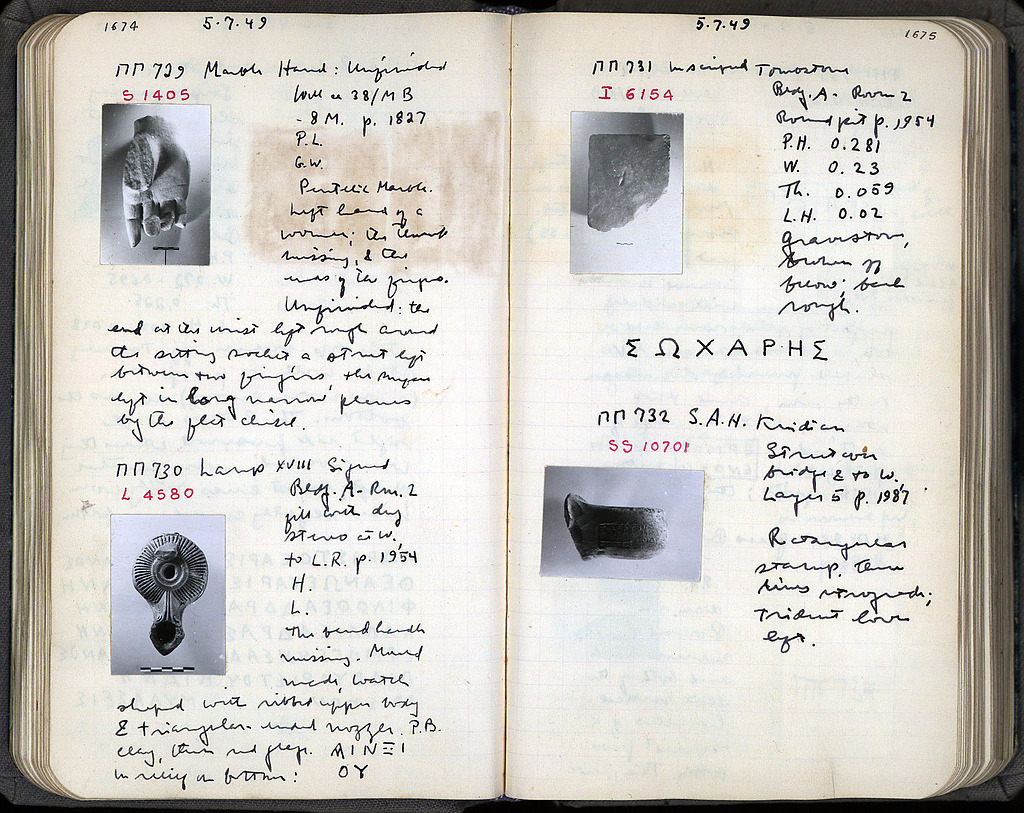 1674
5·7·49
ΠΠ 729 Marble Hand: Unfinished
S 1405
Well ca 38/ΜΒ
- 8 M. p. 1827
P.L.
G.W.
Pentelic Marble.
Left hand of a
woman; the thumb
missing, & the
ends of the fingers.
Unfinished: the
end at the wrist left rough around
the setting socket a strut left
between two fingers, the surface
left in long narrow planes
by the flat chisel.
ΠΠ 730 Lamp XVIII Signed
L 4580
Bldg. A - Rm. 2
fill with dug
stereo at W.,
to L.R. p. 1954
H.
L.
The band handle
missing. Mould
made, watch
shaped with ribbed upper body
& triangular ended nozzle. P.B.
clay, thin red glaze. ΑΙΝΞΙ
in relief on bottom: ΟΥ
5·7·49
1675
ΠΠ 731 Inscribed Tombstone
I 6154
Bldg. A - Room 2
Round pit p. 1954
P.H. 0.281
W. 0.23
Th. 0.059
L.H. 0.02
Gravestone,
broken off
below; back
rough.
ΣΩΧΑΡΗΣ
ΠΠ 732 S.A.H. Knidian
SS 10701
Street over
bridge & to W,
Layer 5 p. 1987
Rectangular
stamp. Three
lines retrograde;
trident
left.